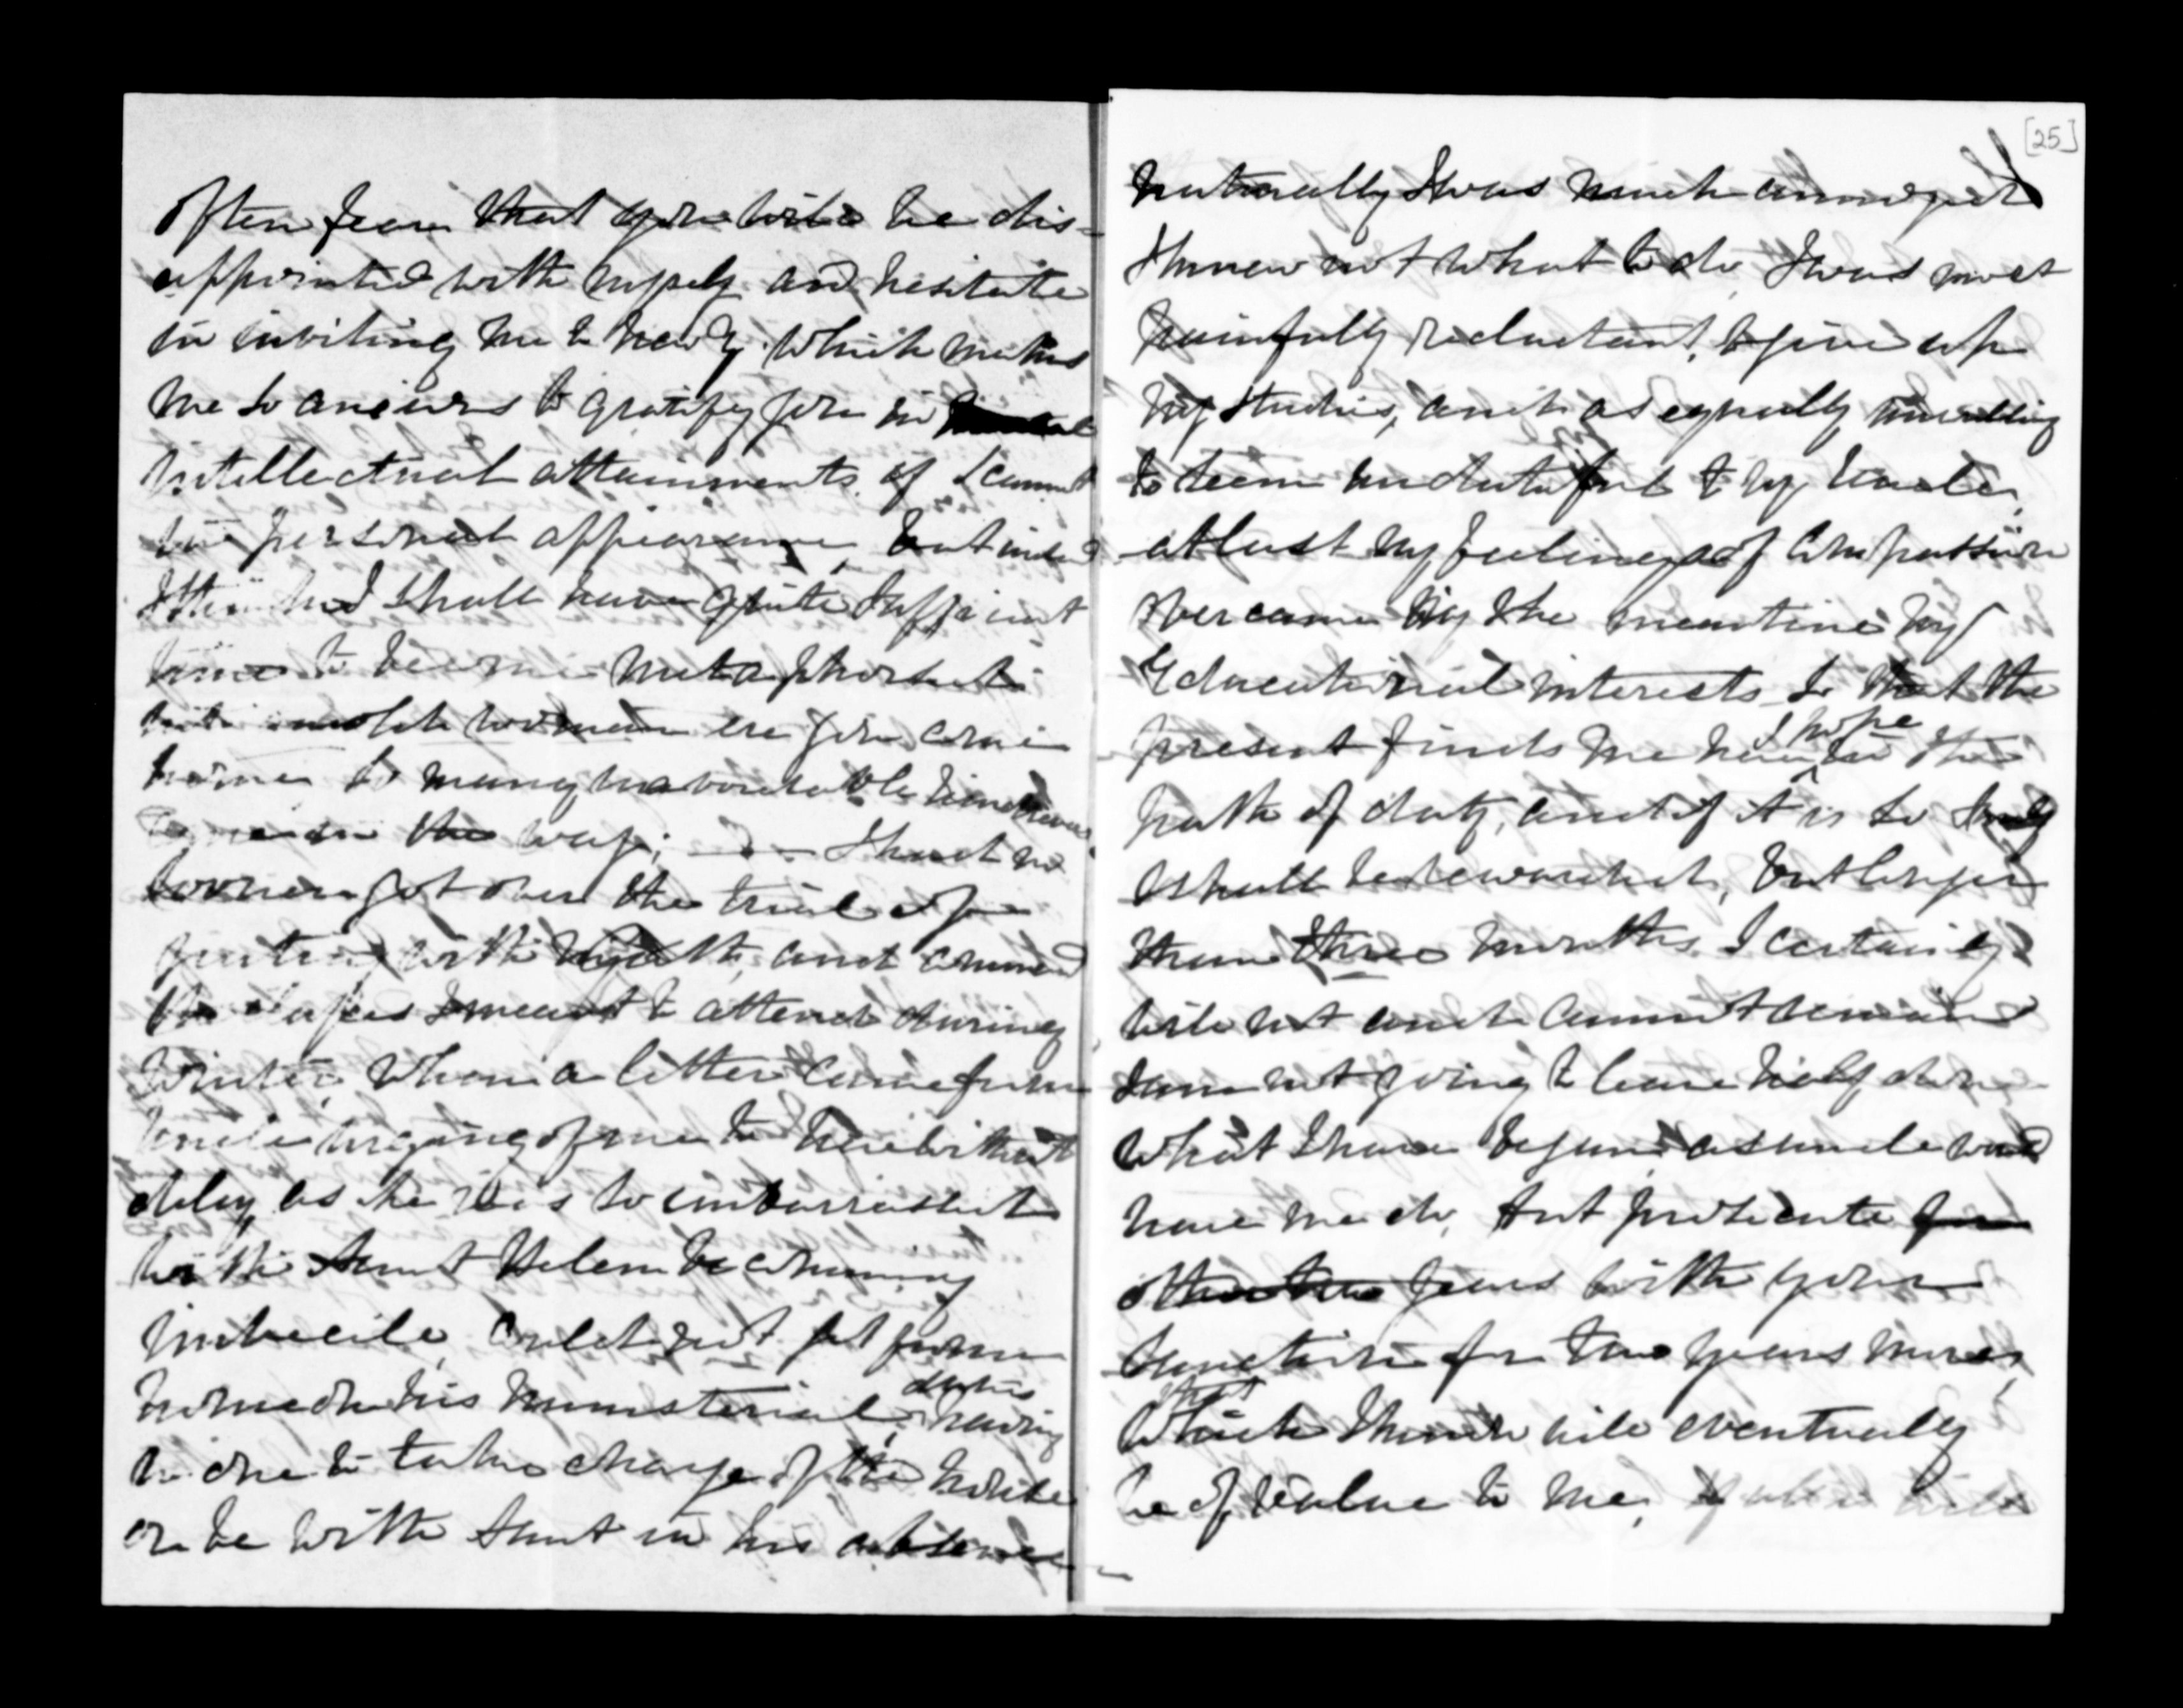 often fear that you will be dis-
appointed with myself and hesitate
in inviting me to New Z. which makes
me so anxious to gratify you in
intellectual attainments, if I cannot
in personal appearance, but indeed
I shall have quite sufficient
time to become metamorphosed
into woman ere you come
home so many unavoidable hindrances
in the way; I had no
sooner got over the trial of
parting with and
the classes I meant to attend during
winter, when a letter came from
Uncle urging of me to here without
delay as he was so embarrassed
with Aunt Helen becoming
imbecile, could not get from
home on his ministerial duties, having
no one to take charge of the house
or be with Aunt in his absence
[25]
naturally I was much annoyed
I knew not what to do, I was most
painfully reluctant, to give up
my studies, and as equally unwilling
to seem undutiful to my Uncle,
at last my feelings of compassion
overcame the meantime my
Educational interests so that the
present finds me here, I hope in the
path of duty, and if it is so
I shall be rewarded, but longer
than three months I certainly
will not and cannot remain
I am not going to leave half done
what I have begun, as Uncle would
have me do, but prosecute
years with your
sanction for two years more,
which I know will eventually
be of value to me,